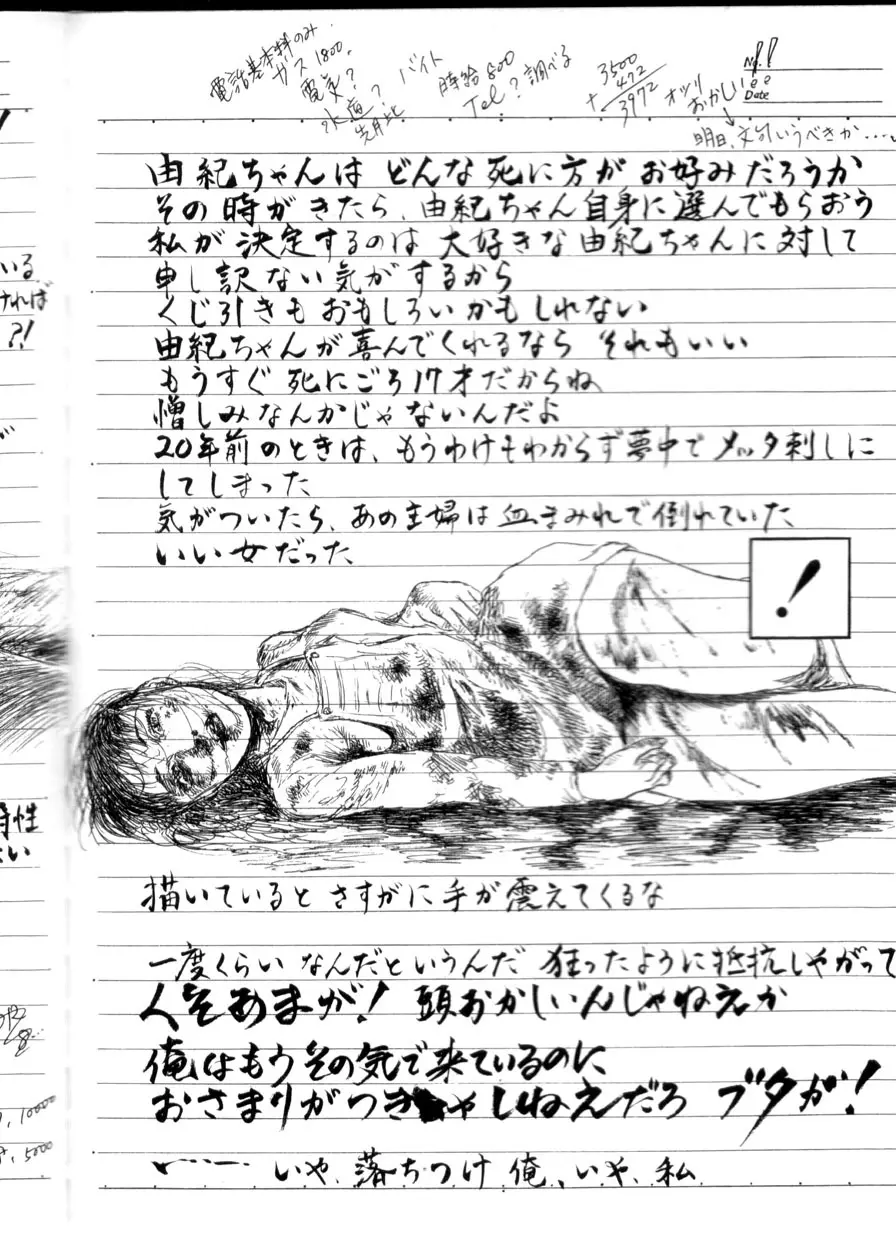 電話基本料のみ
ガス1800.
電気?
水道?
先月比
バイト
時給800
Tel?調べる
3500
+ 472
3972
オツリ
おかしい!!
No.
Date
明日、文句いうべきか…
由紀ちゃんは どんな死に方が お好みだろうか
その時がきたら、由紀ちゃん自身に選んでもらおう
私が決定するのは 大好きな由紀ちゃんに対して
申し訳ない気がするから
くじ引きも おもしろいかもしれない
由紀ちゃんが喜んでくれるなら それもいい
もうすぐ 死にごろ17才だからね
憎しみなんかじゃないんだよ
20年前のときは、もうわけもわからず夢中で メッタ刺しに
してしまった
気がついたら、あの主婦は血まみれで倒れていた
いい女だった
!
描いていると さすがに手が震えてくるな
一度くらい なんだというんだ 狂ったように抵抗しやがって
人をあまが! 頭おかしいんじゃねえか
俺はもうその気で来ているのに
おさまりがつきゃしねえだろ ブタが!
…… いや、落ちつけ 俺、いや、私
いる
ければ
?!
特性
10000
5000